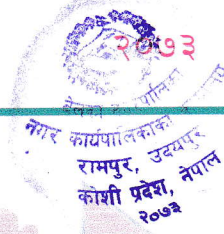 २०७३
नगर कार्यपालिकाको
रामपुर, उदयपुर
कोशी प्रदेश, नेपाल
२०७३